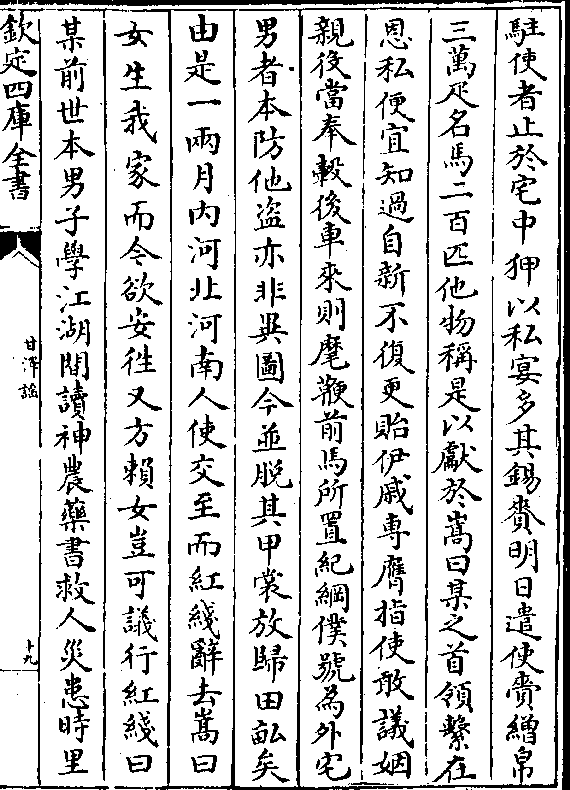 駐使者止於宅中狎以私宴多其錫賚明日遣使賫繒帛
三萬疋名馬二百匹他物稱是以獻於嵩曰某之首領繫在
恩私便宜知過自新不復更貽伊戚專膺指使敢議姻
親役當奉轂後車來則麾鞭前馬所置紀綱僕號為外宅
男者本防他盗亦非異圖今並脱其甲裳放歸田畝矣
由是一兩月内河北河南人使交至而紅綫辭去嵩曰
女生我家而今欲安徃又方賴女豈可議行紅綫曰
某前世本男子學江湖間讀神農藥書救人災患時里
欽定四庫全書
甘澤謡
十九